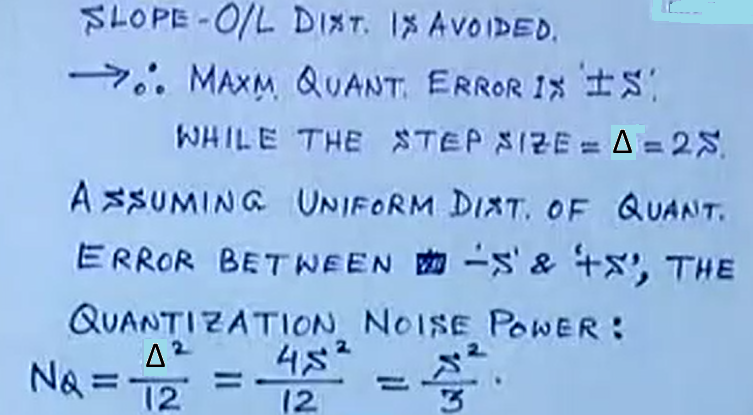 SLOPE-O/L DIST. IS AVOIDED.
→∴ MAXM. QUANT. ERROR IS '±S'.
WHILE THE STEP SIZE = Δ = 2S.
ASSUMING UNIFORM DIST. OF QUANT.
ERROR BETWEEN '-S' & '+S', THE
QUANTIZATION NOISE POWER:
NQ = Δ²/12 = 4S²/12 = S²/3.